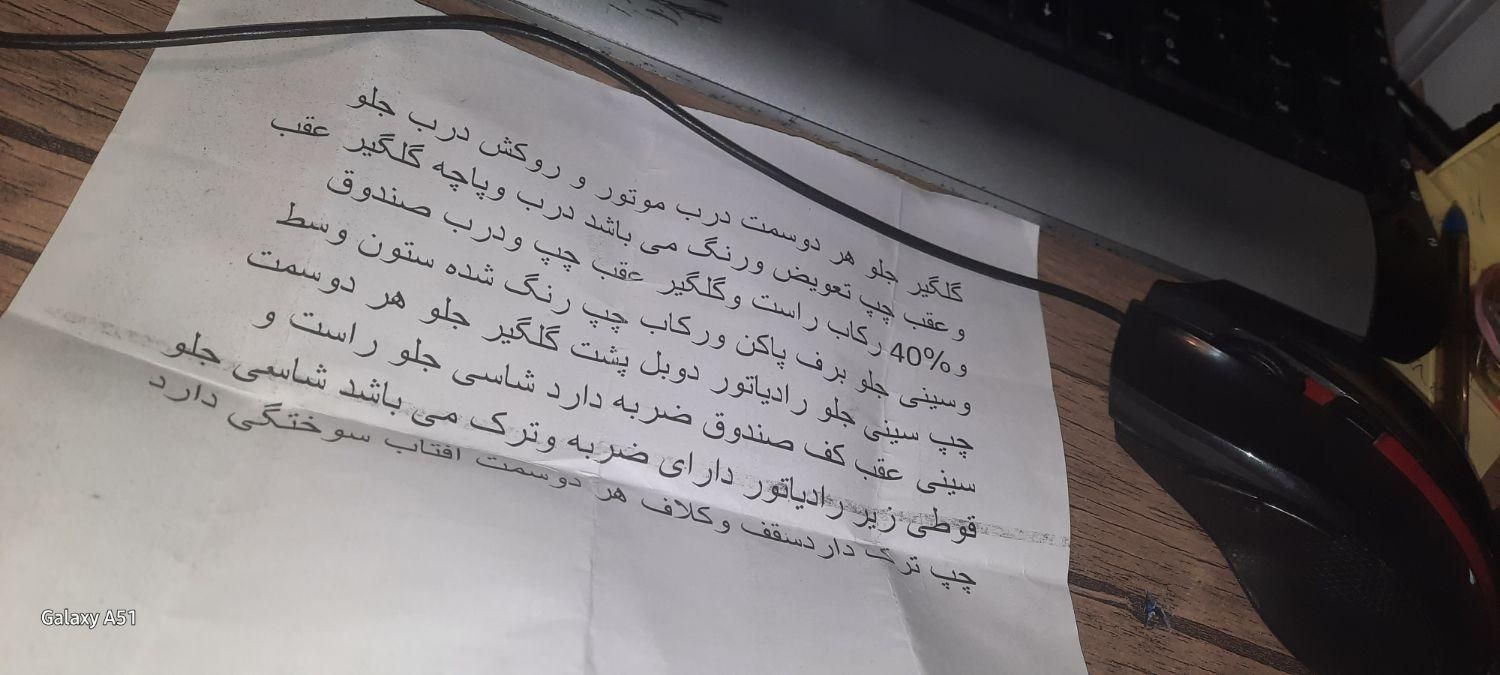 گلگیر جلو هر دوسمت درب موتور و روکش درب جلو
و عقب چپ تعویض ورنگ می باشد درب وپاچه گلگیر عقب
و40% رکاب راست وگلگیر عقب چپ ودرب صندوق
وسینی جلو برف پاکن ورکاب چپ رنگ شده ستون وسط
چپ سینی جلو رادیاتور دوبل پشت گلگیر جلو هر دوسمت
سینی عقب کف صندوق ضربه دارد شاسی جلو راست و
قوطی زیر رادیاتور دارای ضربه وترک می باشد شاسی جلو
چپ ترک داردسقف وکلاف هر دوسمت افتاب سوختگی دارد
Galaxy A51